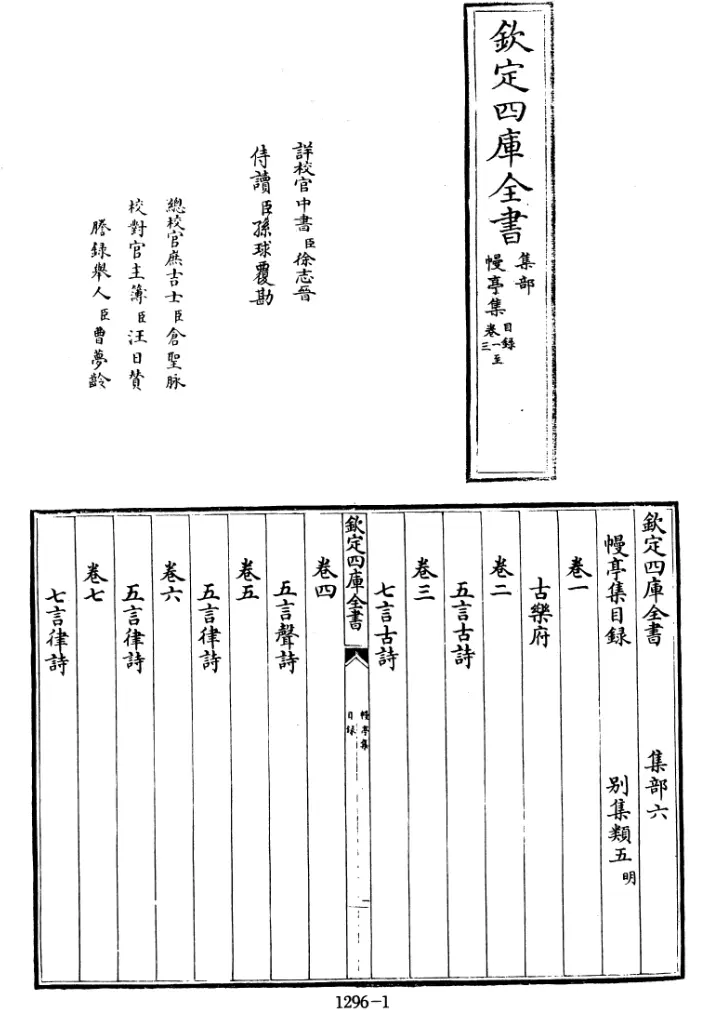 欽定四庫全書
集部
幔亭集
目錄
卷一至三
詳校官中書臣徐志晉
侍讀臣孫球覆勘
總校官庶吉士臣倉聖脉
校對官主簿臣汪日贊
謄錄舉人臣曹夢齡
欽定四庫全書 集部六
幔亭集目録 别集類五 明
卷一
古樂府
卷二
五言古詩
卷三
七言古詩
欽定四庫全書
幔亭集
目録
一
卷四
五言聲詩
卷五
五言律詩
卷六
五言律詩
卷七
七言律詩
1296-1